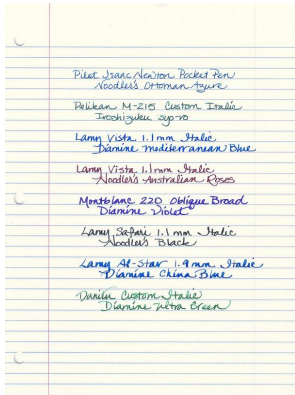 Pilot Isaac Newton Pocket Pen
Noodler's Ottoman Azure
Pelikan M-215 Custom Italic
Iroshizuku syo-ro
Lamy Vista 1.1mm Italic
Diamine Mediterranean Blue
Lamy Vista 1.1mm Italic
Noodler's Australian Roses
Montblanc 220 Oblique Broad
Diamine Violet
Lamy Safari 1.1mm Italic
Noodler's Black
Lamy Al-Star 1.9mm Italic
Diamine China Blue
Danitu Custom Italic
Diamine Ultra Green